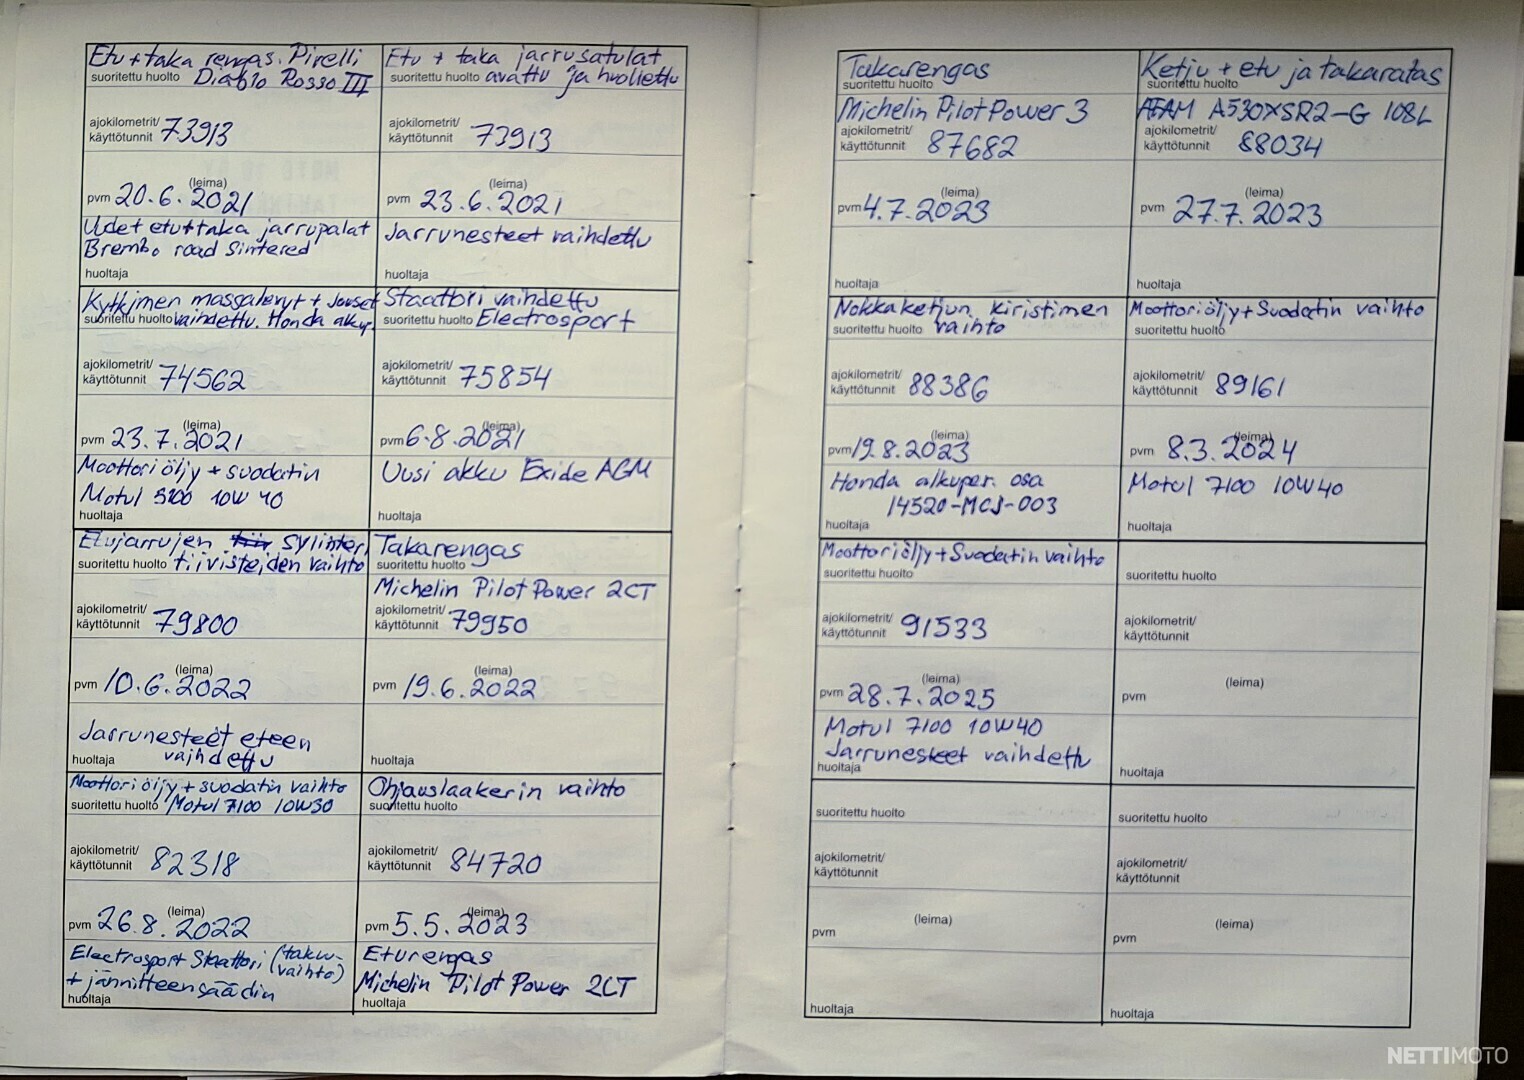 Etu + taka rengas. Pirelli
suoritettu huolto Diablo Rosso III
ajokilometrit/
käyttötunnit 73913
(leima)
pvm 20.6.2021
Uudet etu+taka jarrupalat
Brembo road Sintered
huoltaja
Etu + taka jarrusatulat
suoritettu huolto avattu ja huollettu
ajokilometrit/
käyttötunnit 73913
(leima)
pvm 23.6.2021
Jarrunesteet vaihdettu
huoltaja
Kytkimen massalevyt + Jouset
suoritettu huolto vaihdettu. Honda alkup.
ajokilometrit/
käyttötunnit 74562
(leima)
pvm 23.7.2021
Moottoriöljy + suodatin
Motul 5100 10W40
huoltaja
Staattori vaihdettu
suoritettu huolto Electrosport
ajokilometrit/
käyttötunnit 75854
(leima)
pvm 6.8.2021
Uusi akku Exide AGM
huoltaja
Etujarrujen sylinteri
suoritettu huolto tiivisteiden vaihto
ajokilometrit/
käyttötunnit 79800
(leima)
pvm 10.6.2022
Jarrunesteet eteen
huoltaja vaihdettu
Takarengas
suoritettu huolto
Michelin Pilot Power 2CT
ajokilometrit/
käyttötunnit 79950
(leima)
pvm 19.6.2022
huoltaja
Moottoriöljy + suodatin vaihto
suoritettu huolto Motul 7100 10W30
ajokilometrit/
käyttötunnit 82318
(leima)
pvm 26.8.2022
Electrosport Staattori (takuu-
+ jännitteensäädin vaihto)
huoltaja
Ohjauslaakerin vaihto
suoritettu huolto
ajokilometrit/
käyttötunnit 84720
(leima)
pvm 5.5.2023
Eturengas
Michelin Pilot Power 2CT
huoltaja
Takarengas
suoritettu huolto
Michelin Pilot Power 3
ajokilometrit/
käyttötunnit 87682
(leima)
pvm 4.7.2023
huoltaja
Ketju + etu ja takaratas
suoritettu huolto
AFAM A530XSR2-G 108L
ajokilometrit/
käyttötunnit 88034
(leima)
pvm 27.7.2023
huoltaja
Nokkaketjun kiristimen
suoritettu huolto vaihto
ajokilometrit/
käyttötunnit 88386
(leima)
pvm 19.8.2023
Honda alkuper. osa
14520-MCJ-003
huoltaja
Moottoriöljy + Suodatin vaihto
suoritettu huolto
ajokilometrit/
käyttötunnit 89161
(leima)
pvm 8.3.2024
Motul 7100 10W40
huoltaja
Moottoriöljy + Suodatin vaihto
suoritettu huolto
ajokilometrit/
käyttötunnit 91533
(leima)
pvm 28.7.2025
Motul 7100 10W40
Jarrunesteet vaihdettu
huoltaja
suoritettu huolto
ajokilometrit/
käyttötunnit
(leima)
pvm
huoltaja
suoritettu huolto
ajokilometrit/
käyttötunnit
(leima)
pvm
huoltaja
suoritettu huolto
ajokilometrit/
käyttötunnit
(leima)
pvm
huoltaja
NETTIMOTO